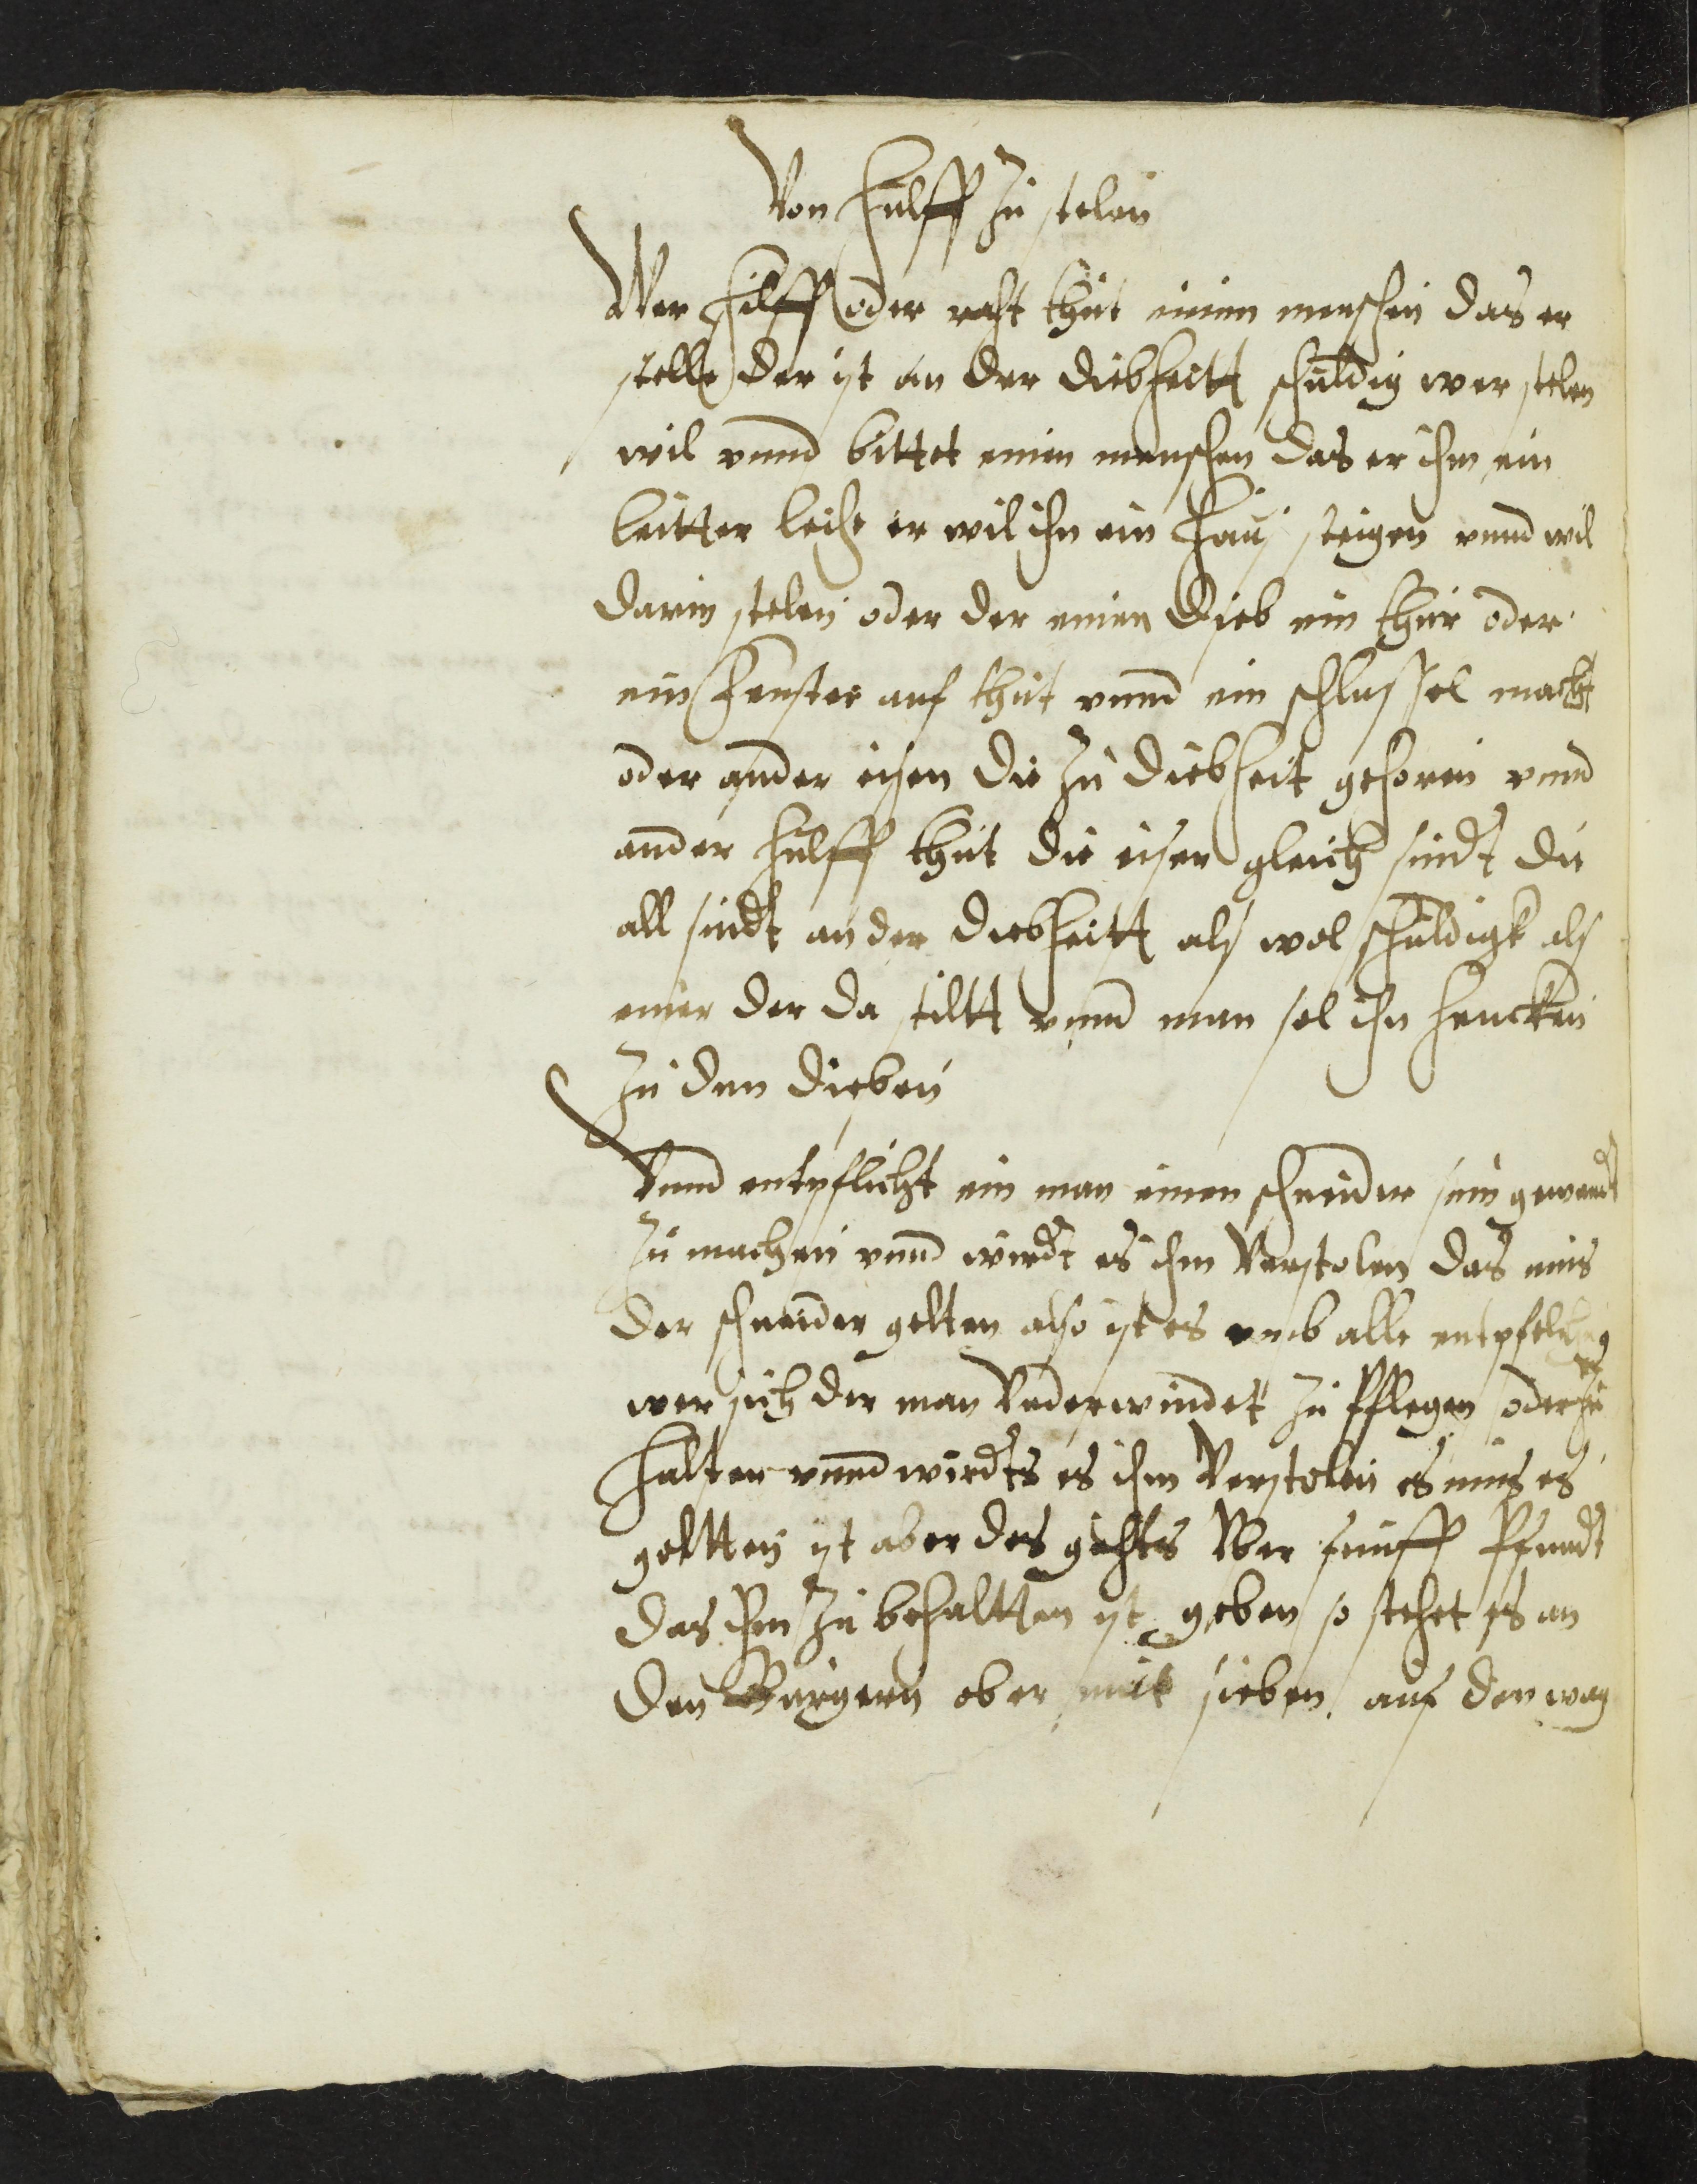 Von Hulff zu stelen
Wer Hilff oder raht thut einem menschen das er
stelle der ist an der diebheitt schuldig wer stelen
wil vnnd bittet einen menschen das er ihm ein
leitter leihe er wil ihn ein Haus steigen vnnd wil
darin stelen oder der einen Dieb ein thur oder
ein Fenster auf thut vnnd ein schlussel macht
oder ander eisen die zu diebheit gehoren vnnd
ander Hulff thut die eiser gleich sindt die
all sindt an der diebheitt als wol schuldigk als
einer der da stiltt vnnd man sol ihn hencken
zu den dieben
Vnnd entpflicht ein man einen schneider sein gewandt
zu machen vnnd wirdt es ihm Verstolen das mus
der schneider gelten also ist es vmb alle
wer sich der man Vnderwindet zu Pflegen oder zu
Halten vnnd wirdts es ihm Verstolen es mus es
geltten ist aber des Wer funff Pfundt
das ihm zu behaltten ist geben so stehet es an
den Burgern ober mit sieben auf den wag